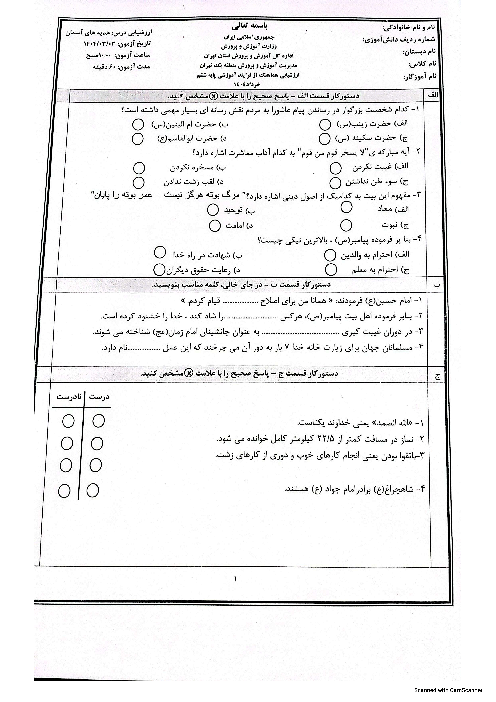 باسمه تعالی
نام و نام خانوادگی:
جمهوری اسلامی ایران
ارزشیابی درس: هدیه های آسمان
شماره ردیف دانش‌آموزی:
وزارت آموزش و پرورش
تاریخ آزمون: ۱۴۰۴/۰۳/۰۳
نام دبستان:
اداره کل آموزش و پرورش استان تهران
ساعت آزمون: ۱۰:۰۰ صبح
نام کلاس:
مدیریت آموزش و پرورش منطقه ... تهران
مدت آزمون: ۶۰ دقیقه
نام آموزگار:
ارزشیابی هماهنگ از فرایند آموزشی پایه ششم
خرداد ۱۴۰۴
الف
دستور کار قسمت الف - پاسخ صحیح را با علامت ⊗ مشخص کنید.
۱- کدام شخصیت بزرگوار در رساندن پیام عاشورا به مردم نقش رسانه ای بسیار مهمی داشته است؟
الف) حضرت زینب(س) ب) حضرت ام البنین(س)
ج) حضرت سکینه (س) د) حضرت ابوالقاسم(ع)
۲- آیه مبارکه ی "لا یسخر قوم من قوم" به کدام آداب معاشرت اشاره دارد؟
الف) غیبت نکردن ب) مسخره نکردن
ج) سوء ظن نداشتن د) لقب زشت ندادن
۳- مفهوم این بیت به کدامیک از اصول دینی اشاره دارد؟ "مرگ بوته هرگز نیست عمر بوته را پایان"
الف) معاد ب) توحید
ج) نبوت د) امامت
۴- بنا بر فرموده پیامبر(ص) ، بالاترین نیکی چیست؟
الف) احترام به والدین ب) شهادت در راه خدا
ج) احترام به معلم د) رعایت حقوق دیگران
ب
دستور کار قسمت ب - در جای خالی، کلمه مناسب بنویسید.
۱- امام حسین(ع) فرمودند: « همانا من برای اصلاح ............... قیام کردم »
۲- بنابر فرموده اهل بیت پیامبر(ص)، هرکس ....................... را شاد کند ، خدا را خشنود کرده است.
۳- در دوران غیبت کبری ............................ به عنوان جانشینان امام زمان(عج) شناخته می شوند.
۴- مسلمانان جهان برای زیارت خانه خدا ۷ بار به دور آن می چرخند که این عمل .............. نام دارد.
ج
دستور کار قسمت ج - پاسخ صحیح را با علامت ⊗ مشخص کنید.
درست نادرست
۱- «الله الصمد» یعنی خداوند یکتاست.
۲- نماز در مسافت کمتر از ۲۲/۵ کیلومتر کامل خوانده می شود.
۳- باتقوا بودن یعنی انجام کارهای خوب و دوری از کارهای زشت.
۴- شاهچراغ(ع) برادر امام جواد (ع) هستند.
۱
Scanned with CamScanner